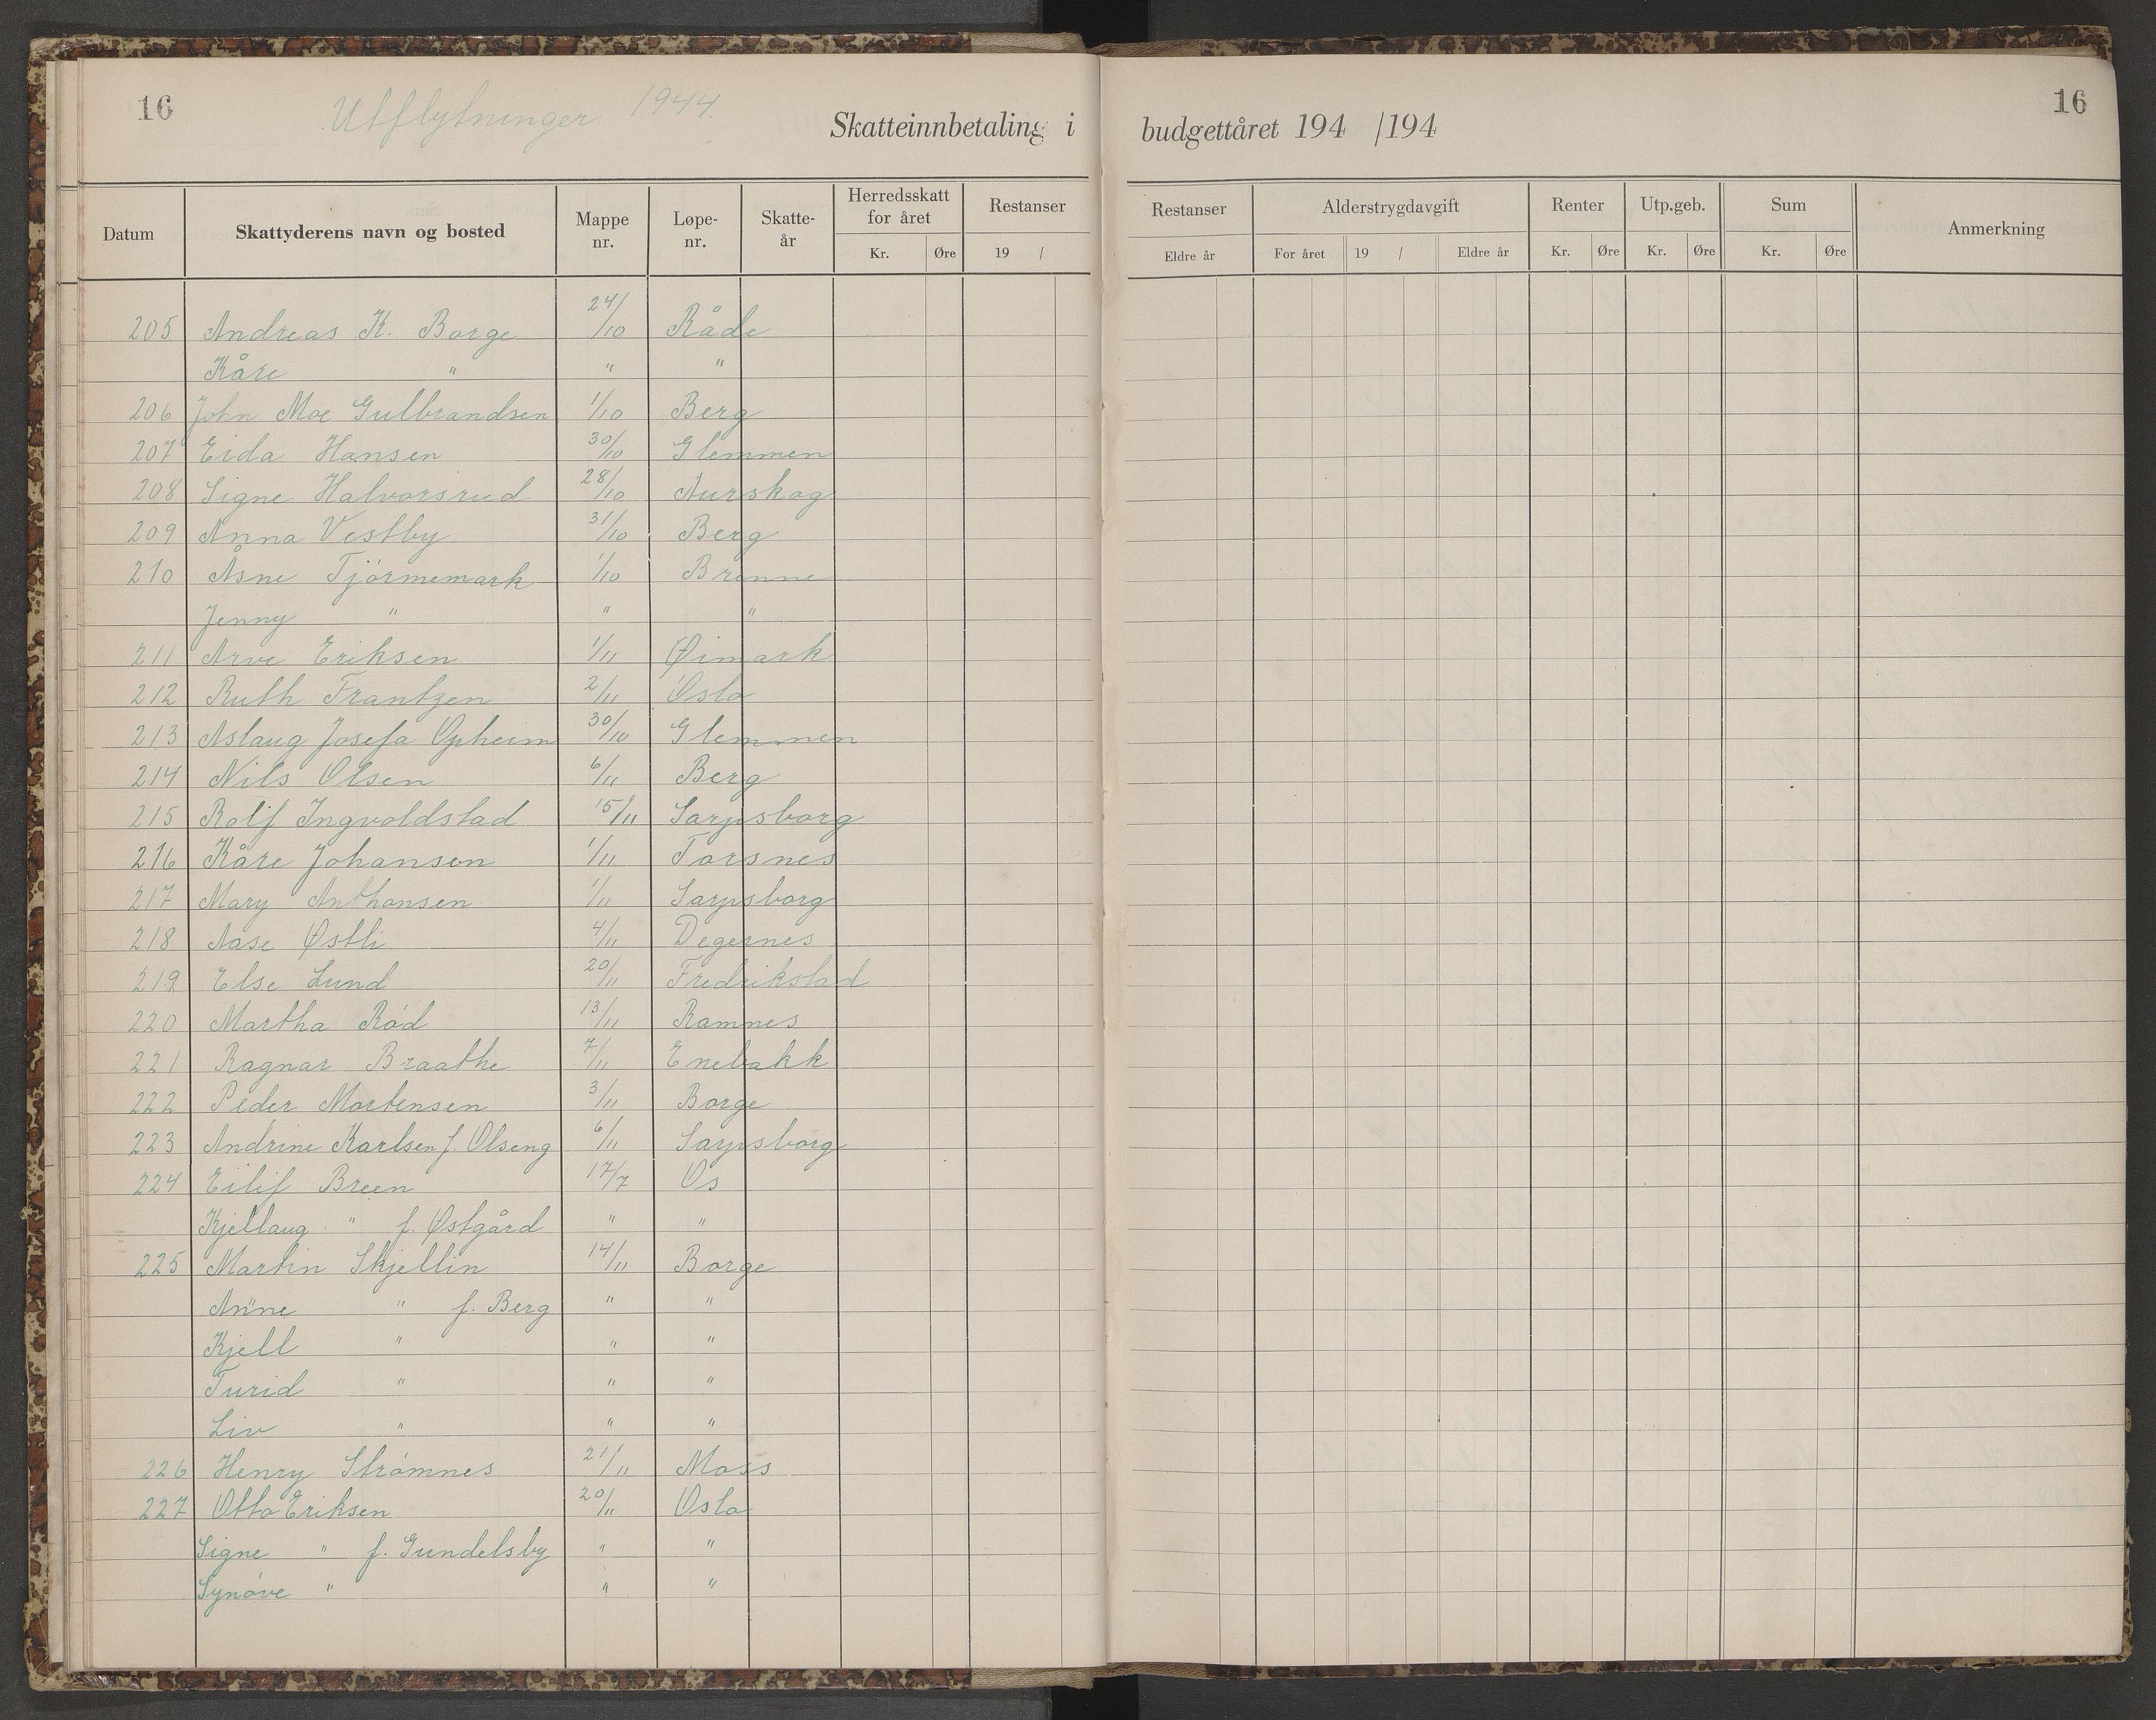 16
Utflytninger 1944.
Skatteinnbetaling i budgettåret 194 /194
16
Datum Skattyderens navn og bosted Mappe nr. Løpe-nr. Skatte-år Herredsskatt for året Kr. Øre Restanser 19 / Restanser Eldre år Alderstrygdavgift For året 19 / Eldre år Renter Kr. Øre Utp.geb. Kr. Øre Sum Kr. Øre Anmerkning
205 Andreas K. Borge 24/10 Råde
Kåre " " "
206 John Moe Gulbrandsen 1/10 Berg
207 Eida Hansen 30/10 Glemmen
208 Signe Halvorsrud 28/10 Aurskog
209 Anna Vestby 31/10 Berg
210 Åsne Tjörmemark 1/10 Brenne
Jenny " " "
211 Arve Eriksen 1/11 Øimark
212 Ruth Frantzen 2/11 Oslo
213 Aslaug Josefa Opheim 30/10 Glemmen
214 Nils Olsen 6/11 Berg
215 Rolf Ingvoldstad 15/11 Sarpsborg
216 Kåre Johansen 1/11 Torsnes
217 Mary Anthonsen 1/11 Sarpsborg
218 Aase Østli 4/11 Degernes
219 Else Lund 20/11 Fredrikstad
220 Martha Röd 13/11 Ramnes
221 Ragnar Braathe 7/11 Enebakk
222 Peder Mortensen 3/11 Borge
223 Andrine Karlsen f. Olseng 6/11 Sarpsborg
224 Eilif Breen 17/7 Os
Kjellaug " f. Østgård " "
225 Martin Skjellin 14/11 Borge
Anne " f. Berg " "
Kjell " " "
Turid " " "
Liv " " "
226 Henry Strömnes 21/11 Moss
227 Otto Eriksen 20/11 Oslo
Signe " f. Gundelsby " "
Synöve " " "